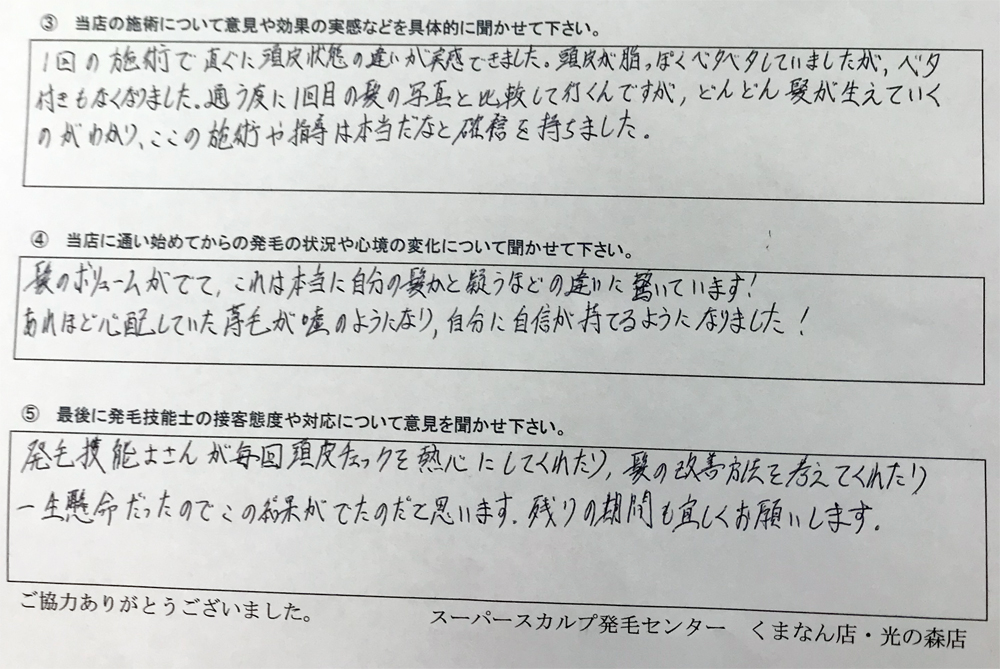 ③ 当店の施術について意見や効果の実感などを具体的に聞かせて下さい。
1回の施術で直ぐに頭皮状態の違いが実感できました。頭皮が脂っぽくベタベタしていましたが、ベタ
付きもなくなりました。通う度に1回目の髪の写真と比較して行くんですが、どんどん髪が生えていく
のがわかり、ここの施術や指導は本当だなと確信を持ちました。
④ 当店に通い始めてからの発毛の状況や心境の変化について聞かせて下さい。
髪のボリュームがでて、これは本当に自分の髪かと疑うほどの違いに驚いています!
あれほど心配していた薄毛が嘘のようになり、自分に自信が持てるようになりました!
⑤ 最後に発毛技能士の接客態度や対応について意見を聞かせ下さい。
発毛技能士さんが毎回頭皮チェックを熱心にしてくれたり、髪の改善方法を考えてくれたり
一生懸命だったのでこの結果がでたのだと思います。残りの期間も宜しくお願いします。
ご協力ありがとうございました。 スーパースカルプ発毛センター くまなん店・光の森店